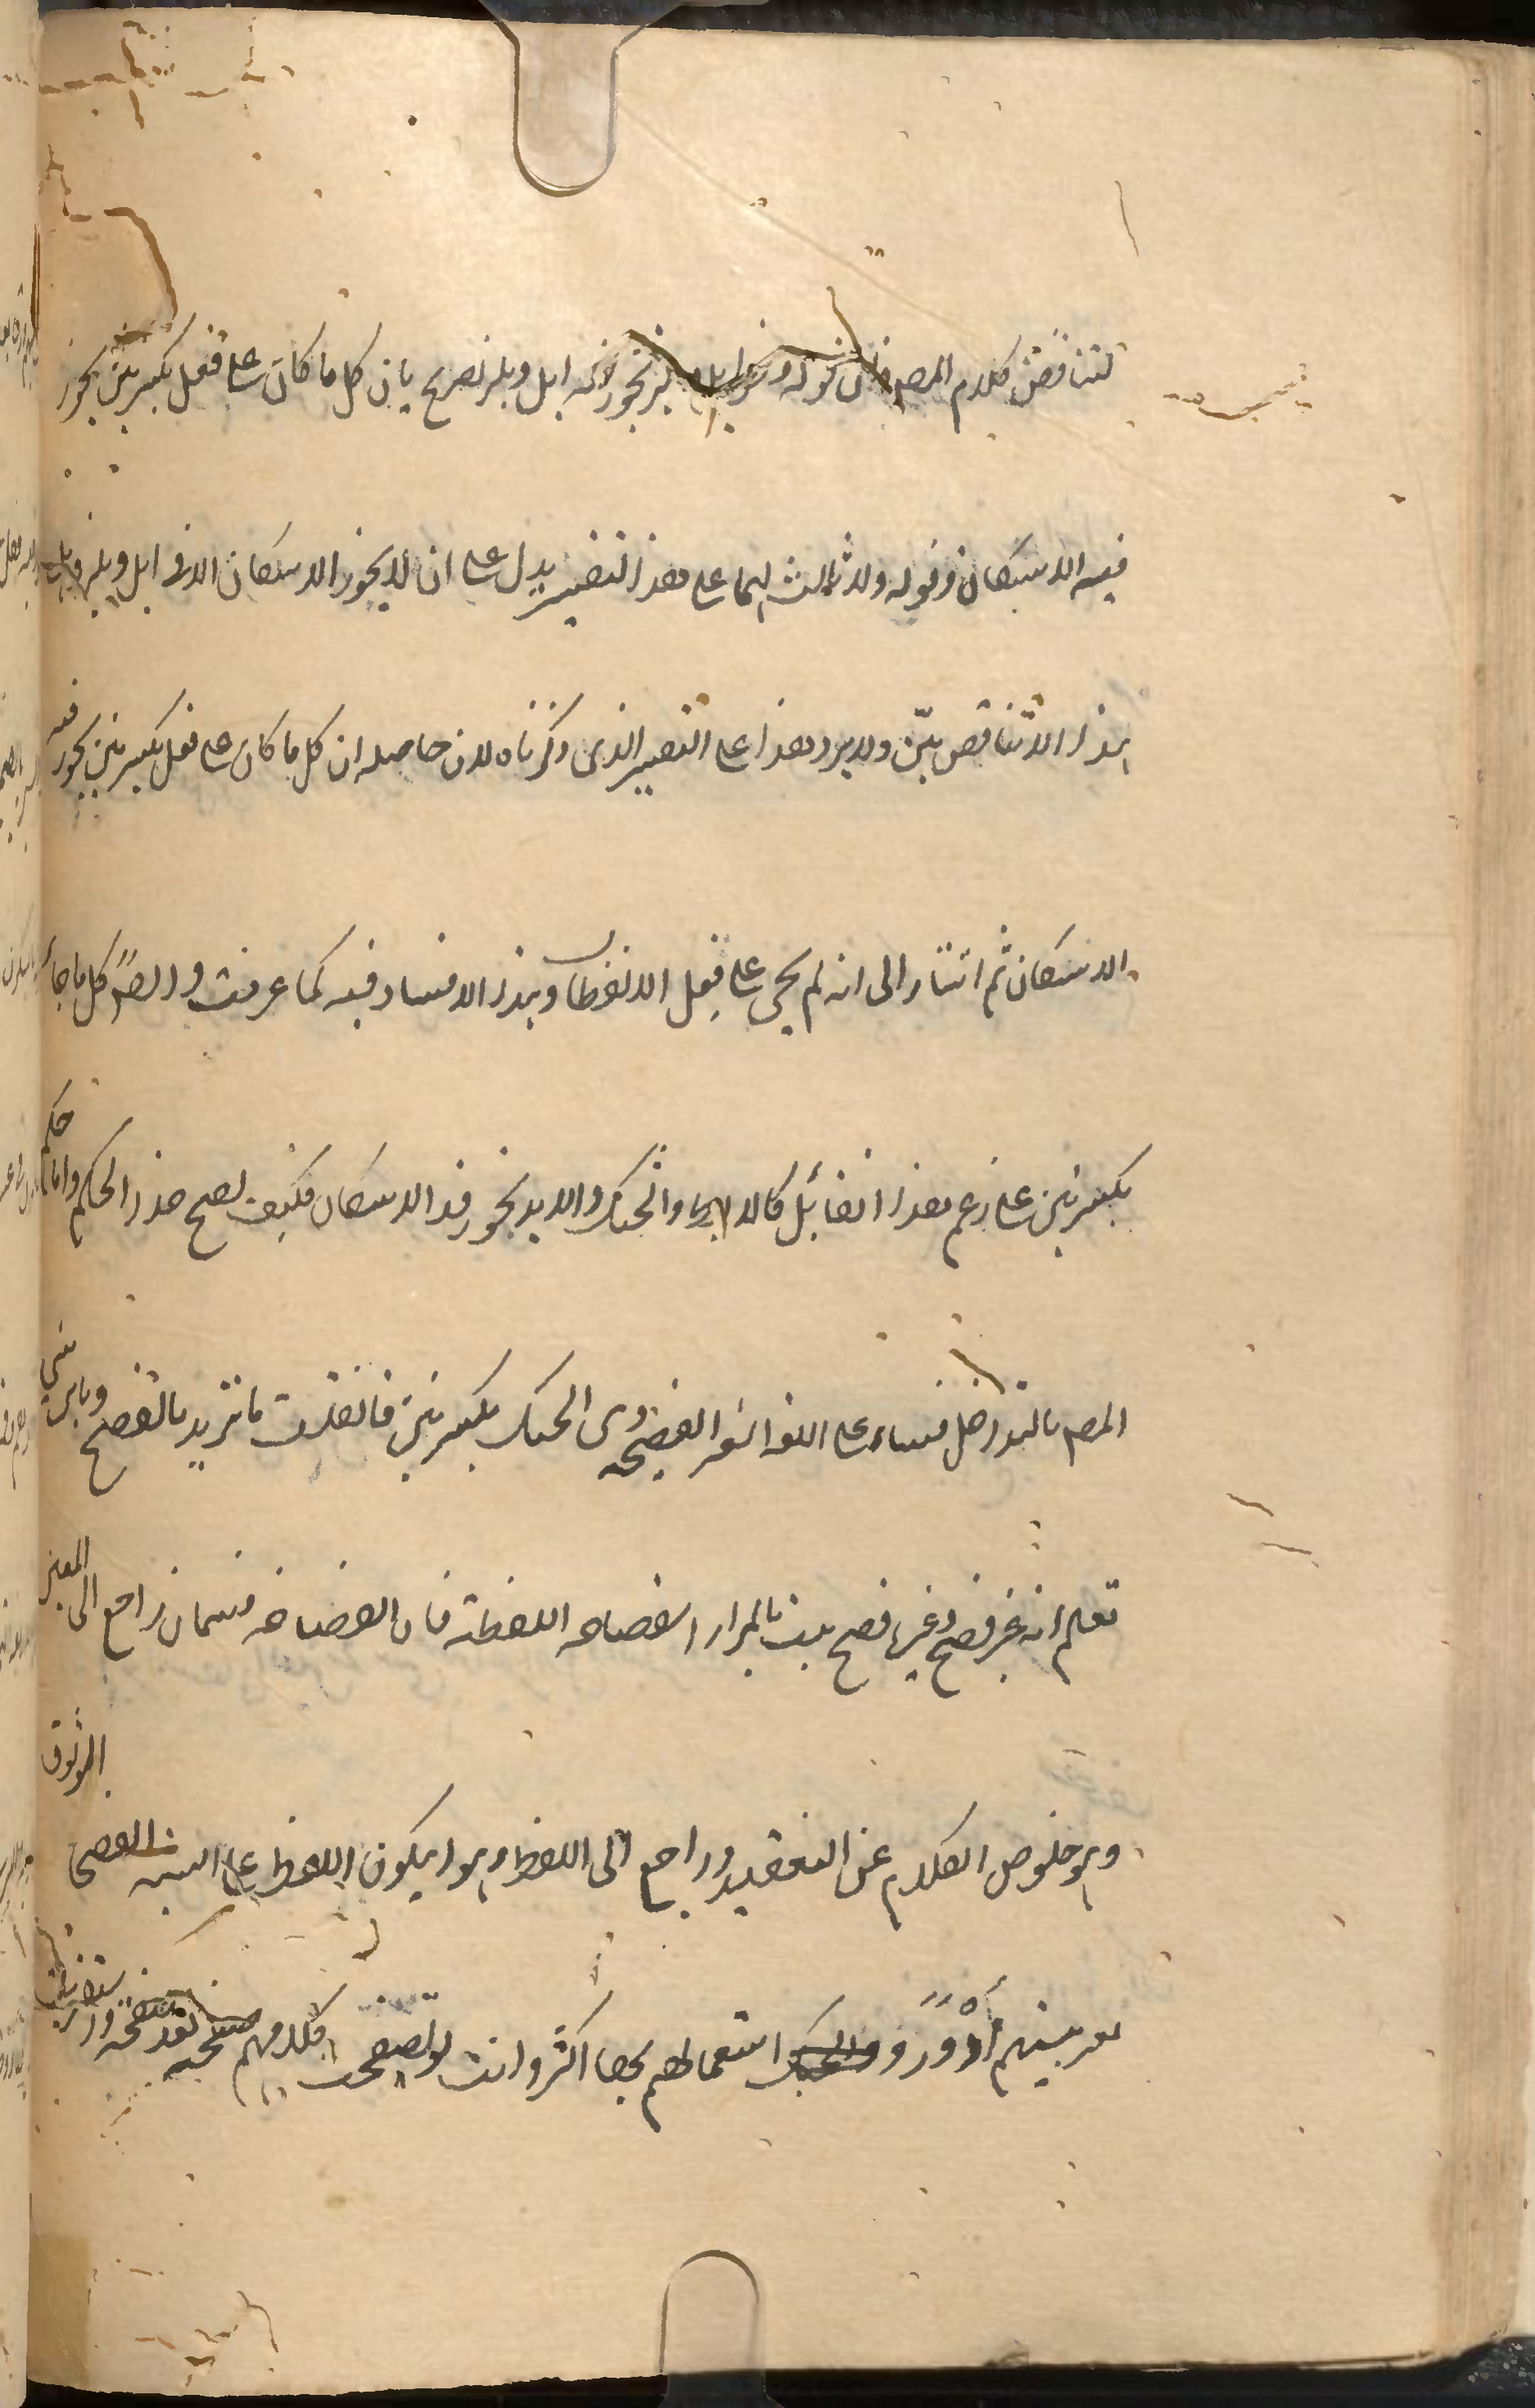 لتناقض كلام المصـ فان قوله ونحو ابل وبلز نحوز نحو ابل وبلز تصريح بان كل ما كان على فعل بكسرتين يجوز
فيه الاسكان وقوله ولا ثالث لهما على هذا التفسير يدل على ان لا يجوز الاسكان الا فى ابل وبلز
هذا الا تناقض بيّن ولا يرد هذا على التفسير الذى ذكرناه لان حاصله ان كل ما كان على فعل بكسرتين يجوز فيه
الاسكان ثم اشار الى انه لم يجئ على فِعِل الا لفظان وهذا لا فساد فيه كما عرفت وايضًا كل ما جاء
بكسرتين على زعم هذا القائل كالابط والحبك والابد يجوز فيه الاسكان فكيف يصح هذا الحكم واما حكم
المصـ بالتداخل فبناء على اللغة الغير الفصيحة وى الحبك بكسرتين فان قلت ما تريد بالفصيح وباى شئ
تعلم انه غير فصيح وغيره فصيح قلت المراد الفصاحة اللفظية فان الفصاحة قسمان راجع الى المعنى
وهو خلوص الكلام عن التعقيد وراجع الى اللفظ وهو ان يكون اللفظ على السنة الفصحاء الموثوق
بعربيتهم أدْوَرَ و استعمالهم بها اكثر وانت لو تصفحت كلامهم